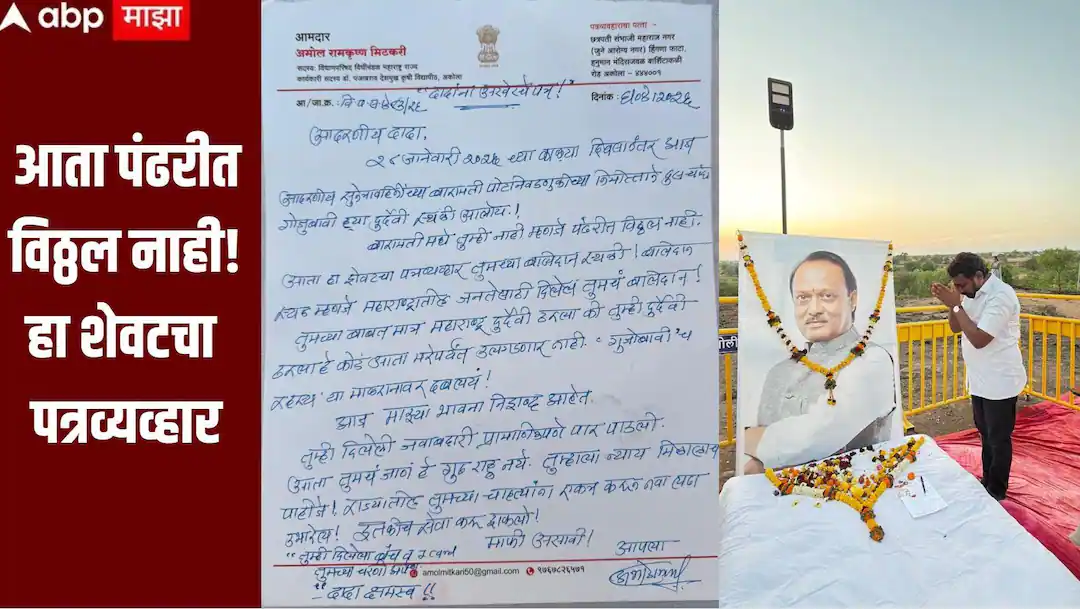 abp माझा
आता पंढरीत
विठ्ठल नाही!
हा शेवटचा
पत्रव्यव्हार
आमदार
अमोल रामकृष्ण मिटकरी
सदस्य: विधानपरिषद विधीमंडळ महाराष्ट्र राज्य
कार्यकारी सदस्य डॉ. पंजाबराव देशमुख कृषी विद्यापीठ, अकोला
पत्रव्यवहाराचा पत्ता -
छत्रपती संभाजी महाराज नगर
(जुने आरोग्य नगर) हिंगणा फाटा,
हनुमान मंदिराजवळ कार्शिटाकळी
रोड अकोला - ४४४००१
"दादांना अखेरचे पत्र!"
आ/जा.क्र.
दिनांक :
आदरणीय दादा,
२८ जानेवारी २०२६ च्या काळ्या दिवसानंतर आज
आदरणीय सुनेत्रावहिनींच्या बारामती पोटनिवडणुकीच्या निमीत्ताने
गोजुबावी ह्या दुर्दैवी स्थळी आलोय!
बारामती मध्ये तुम्ही नाही म्हणजे पंढरीत विठ्ठल नाही.
आता हा शेवटचा पत्रव्यव्हार तुमच्या बलिदान स्थळी! बलिदान
स्थळ म्हणजे महाराष्ट्रातील जनतेसाठी दिलेलं तुमचं बलिदान!
तुमच्या बाबत मात्र महाराष्ट्र दुर्दैवी ठरला की तुम्ही दुर्दैवी
ठरला हे कोडं आता मरेपर्यंत उलगडणार नाही. "गुजोबावी"च
रहस्य या माळरानावर दबलयं!
आज माझ्या भावना निशब्द आहेत.
तुम्ही दिलेली जवाबदारी प्रामाणिकपणे पार पाडली.
आता तुमचं जाणं हे गूढ राहू नये. तुम्हाला न्याय मिळालाच
पाहीजे! राज्यातील तुमच्या चाहत्यांना एकत्र करून नवा लढा
उभारेल! इतकीच सेवा करू शकलो!
माफी असावी!
आपला
"तुम्ही दिलेला
तुमच्या चरणी अर्पण
amolmitkari50@gmail.com ९७६७८२६५७१
- दादा क्षमस्व!!